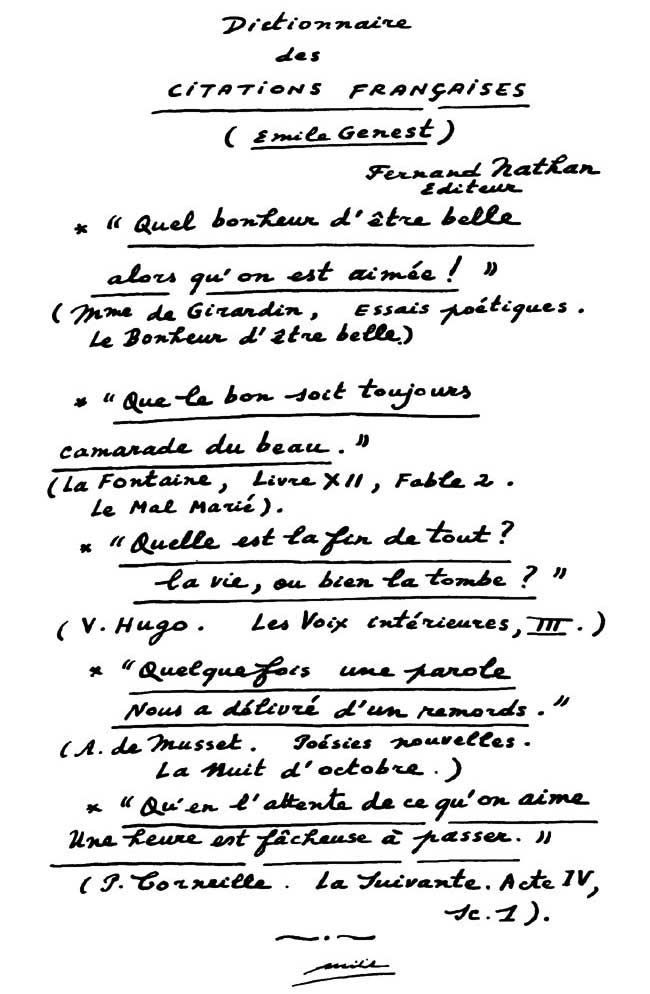 Dictionnaire
des
CITATIONS FRANÇAISES
( Emile Genest )
Fernand Nathan
Editeur
* " Quel bonheur d'être belle
alors qu'on est aimée ! "
( Mme de Girardin, Essais poétiques.
Le Bonheur d'être belle.)
* " Que le bon soit toujours
camarade du beau. "
( La Fontaine, Livre XII, Fable 2.
Le Mal Marié ).
* " Quelle est la fin de tout ?
la vie, ou bien la tombe ? "
( V. Hugo. Les Voix intérieures, III. )
* " Quelquefois une parole
Nous a délivré d'un remords. "
( A. de Musset. Poésies nouvelles.
La Nuit d'octobre. )
* " Qu'en l'attente de ce qu'on aime
Une heure est fâcheuse à passer. "
( P. Corneille. La Suivante. Acte IV,
Sc. 1 ).